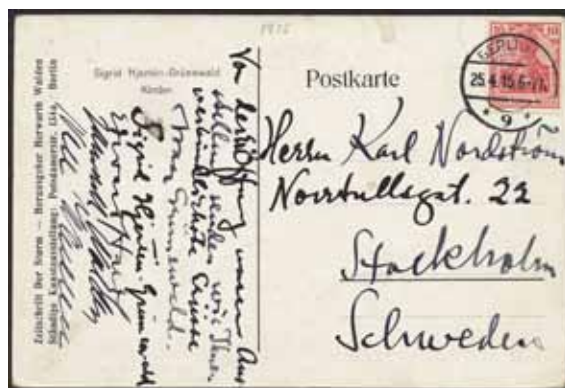 1915
Zeitschrift Der Sturm — Herausgeber Herwarth Walden
Ständige Kunstausstellung: Potsdamerstr. 134a, Berlin
Sigrid Hjertén-Grünewald
Kinder
Vor der Eröffnung unserer Aus
stellung senden wir Ihnen
verbindlichste Grüsse
Isaac Grünewald.
Sigrid Hjertén-Grünewald
Herwarth Walden
Nell Walden
Postkarte
BERLIN
25.4.15.
* 9 *
10 10
Herrn Karl Nordström
Norrtullsgat. 22
Stockholm
Schweden